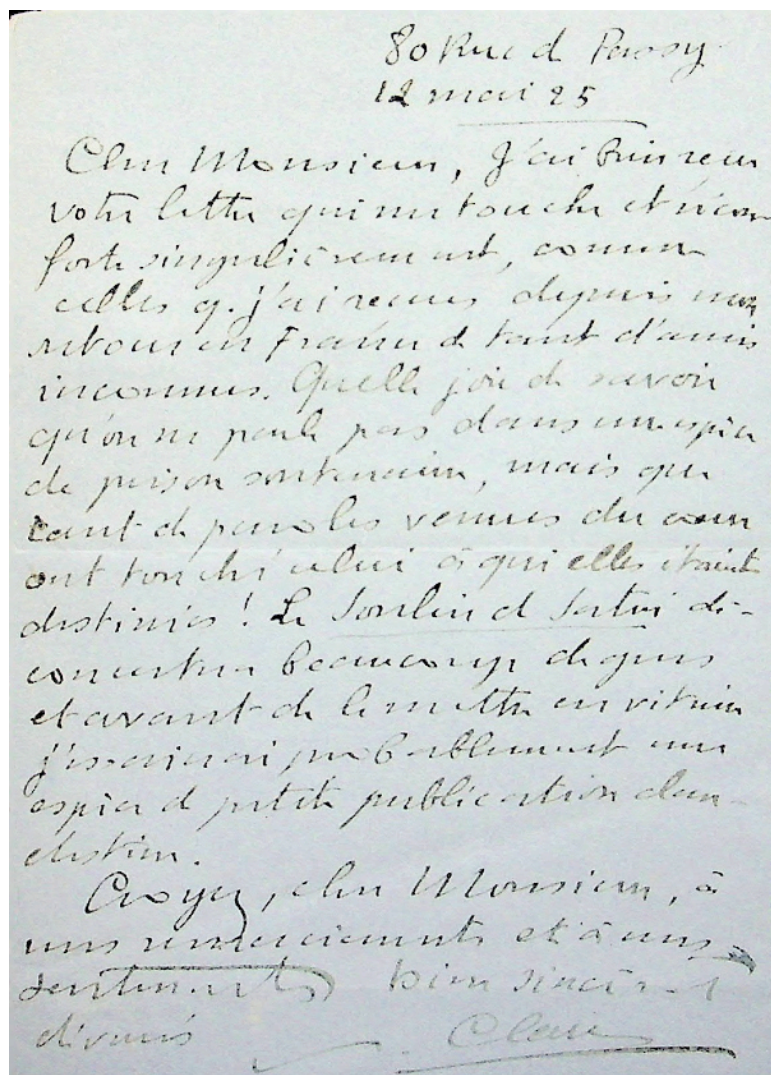 80 Rue de Passy
12 mai 25
Cher Monsieur, J'ai bien reçu
votre lettre qui me touche et récon-
forte singulièrement, comme
celles q. j'ai reçues depuis mon
retour en France de tant d'amis
inconnus. Quelle joie de savoir
qu'on ne parle pas dans une espèce
de prison souterraine, mais que
tant de paroles venues du cœur
ont touché celui à qui elles étaient
destinées ! Le Soulier de Satin dé-
concertera beaucoup de gens
et avant de le mettre en vitrine
j'essaierai probablement une
espèce de petite publication clan-
destine.
Croyez, cher Monsieur, à
mes remerciements et à mes
sentiments bien sincères et
dévoués